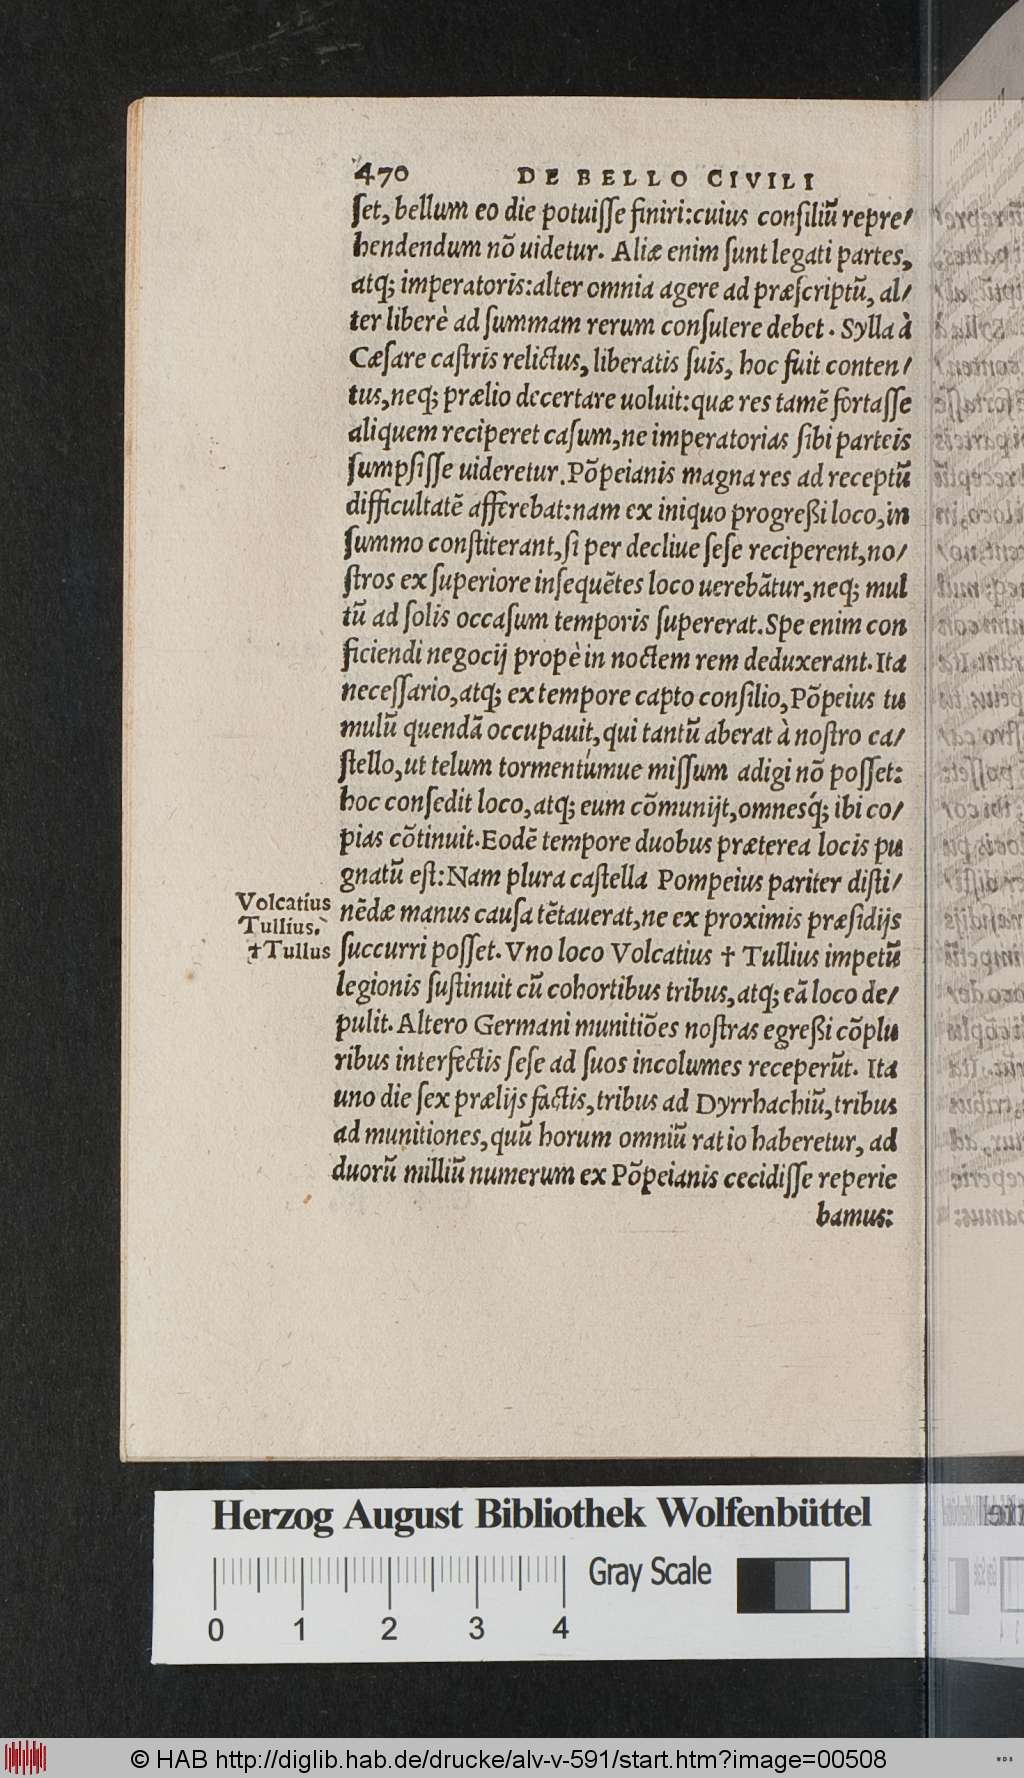 470 DE BELLO CIVILI
ſet, bellum eo die potuiſſe finiri: cuius conſiliũ repre/
hendendum nõ uidetur. Aliæ enim ſunt legati partes,
atq; imperatoris: alter omnia agere ad præſcriptũ, al/
ter liberè ad ſummam rerum conſulere debet. Sylla à
Cæſare caſtris relictus, liberatis ſuis, hoc fuit conten/
tus, neq; prælio decertare uoluit: quæ res tamẽ fortaſſe
aliquem reciperet caſum, ne imperatorias ſibi parteis
ſumpſiſſe uideretur. Põpeianis magna res ad receptũ
difficultatẽ afferebat: nam ex iniquo progreßi loco, in
ſummo conſtiterant, ſi per decliue ſeſe reciperent, no/
ſtros ex ſuperiore inſequẽtes loco uerebãtur, neq; mul
tũ ad ſolis occaſum temporis ſupererat. Spe enim con
ficiendi negocij propè in noctem rem deduxerant. Ita
neceſſario, atq; ex tempore capto conſilio, Põpeius tu
mulũ quendã occupauit, qui tantũ aberat à noſtro ca/
ſtello, ut telum tormentúmue miſſum adigi nõ poſſet:
hoc conſedit loco, atq; eum cõmunijt, omnesq́; ibi co/
pias cõtinuit. Eodẽ tempore duobus præterea locis pu
gnatũ eſt: Nam plura caſtella Pompeius pariter diſti/
nẽdæ manus cauſa tẽtauerat, ne ex proximis præſidijs
ſuccurri poſſet. Vno loco Volcatius † Tullius impetũ
legionis ſuſtinuit cũ cohortibus tribus, atq; eã loco de/
pulit. Altero Germani munitiões noſtras egreßi cõplu
ribus interfectis ſeſe ad ſuos incolumes receperũt. Ita
uno die ſex prælijs factis, tribus ad Dyrrhachiũ, tribus
ad munitiones, quũ horum omniũ ratio haberetur, ad
duorũ milliũ numerum ex Põpeianis cecidiſſe reperie
bamus:
Volcatius
Tullius.
†Tullus
Herzog August Bibliothek Wolfenbüttel
Gray Scale
0 1 2 3 4
© HAB http://diglib.hab.de/drucke/alv-v-591/start.htm?image=00508